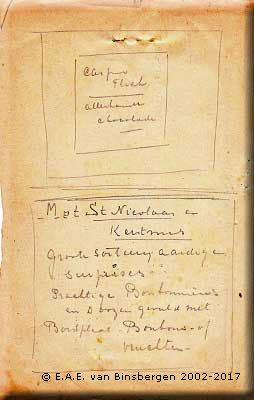 Casper
Flick
allerhande
chocolade
Met St Nicolaas en
Kerstmis
Groote sorteering aardige
surprises
Prachtige Bonbonnières
en Doozen gevuld met
Borstplaat Bonbons of
vruchten
© E.A.E. van Binsbergen 2002-2017